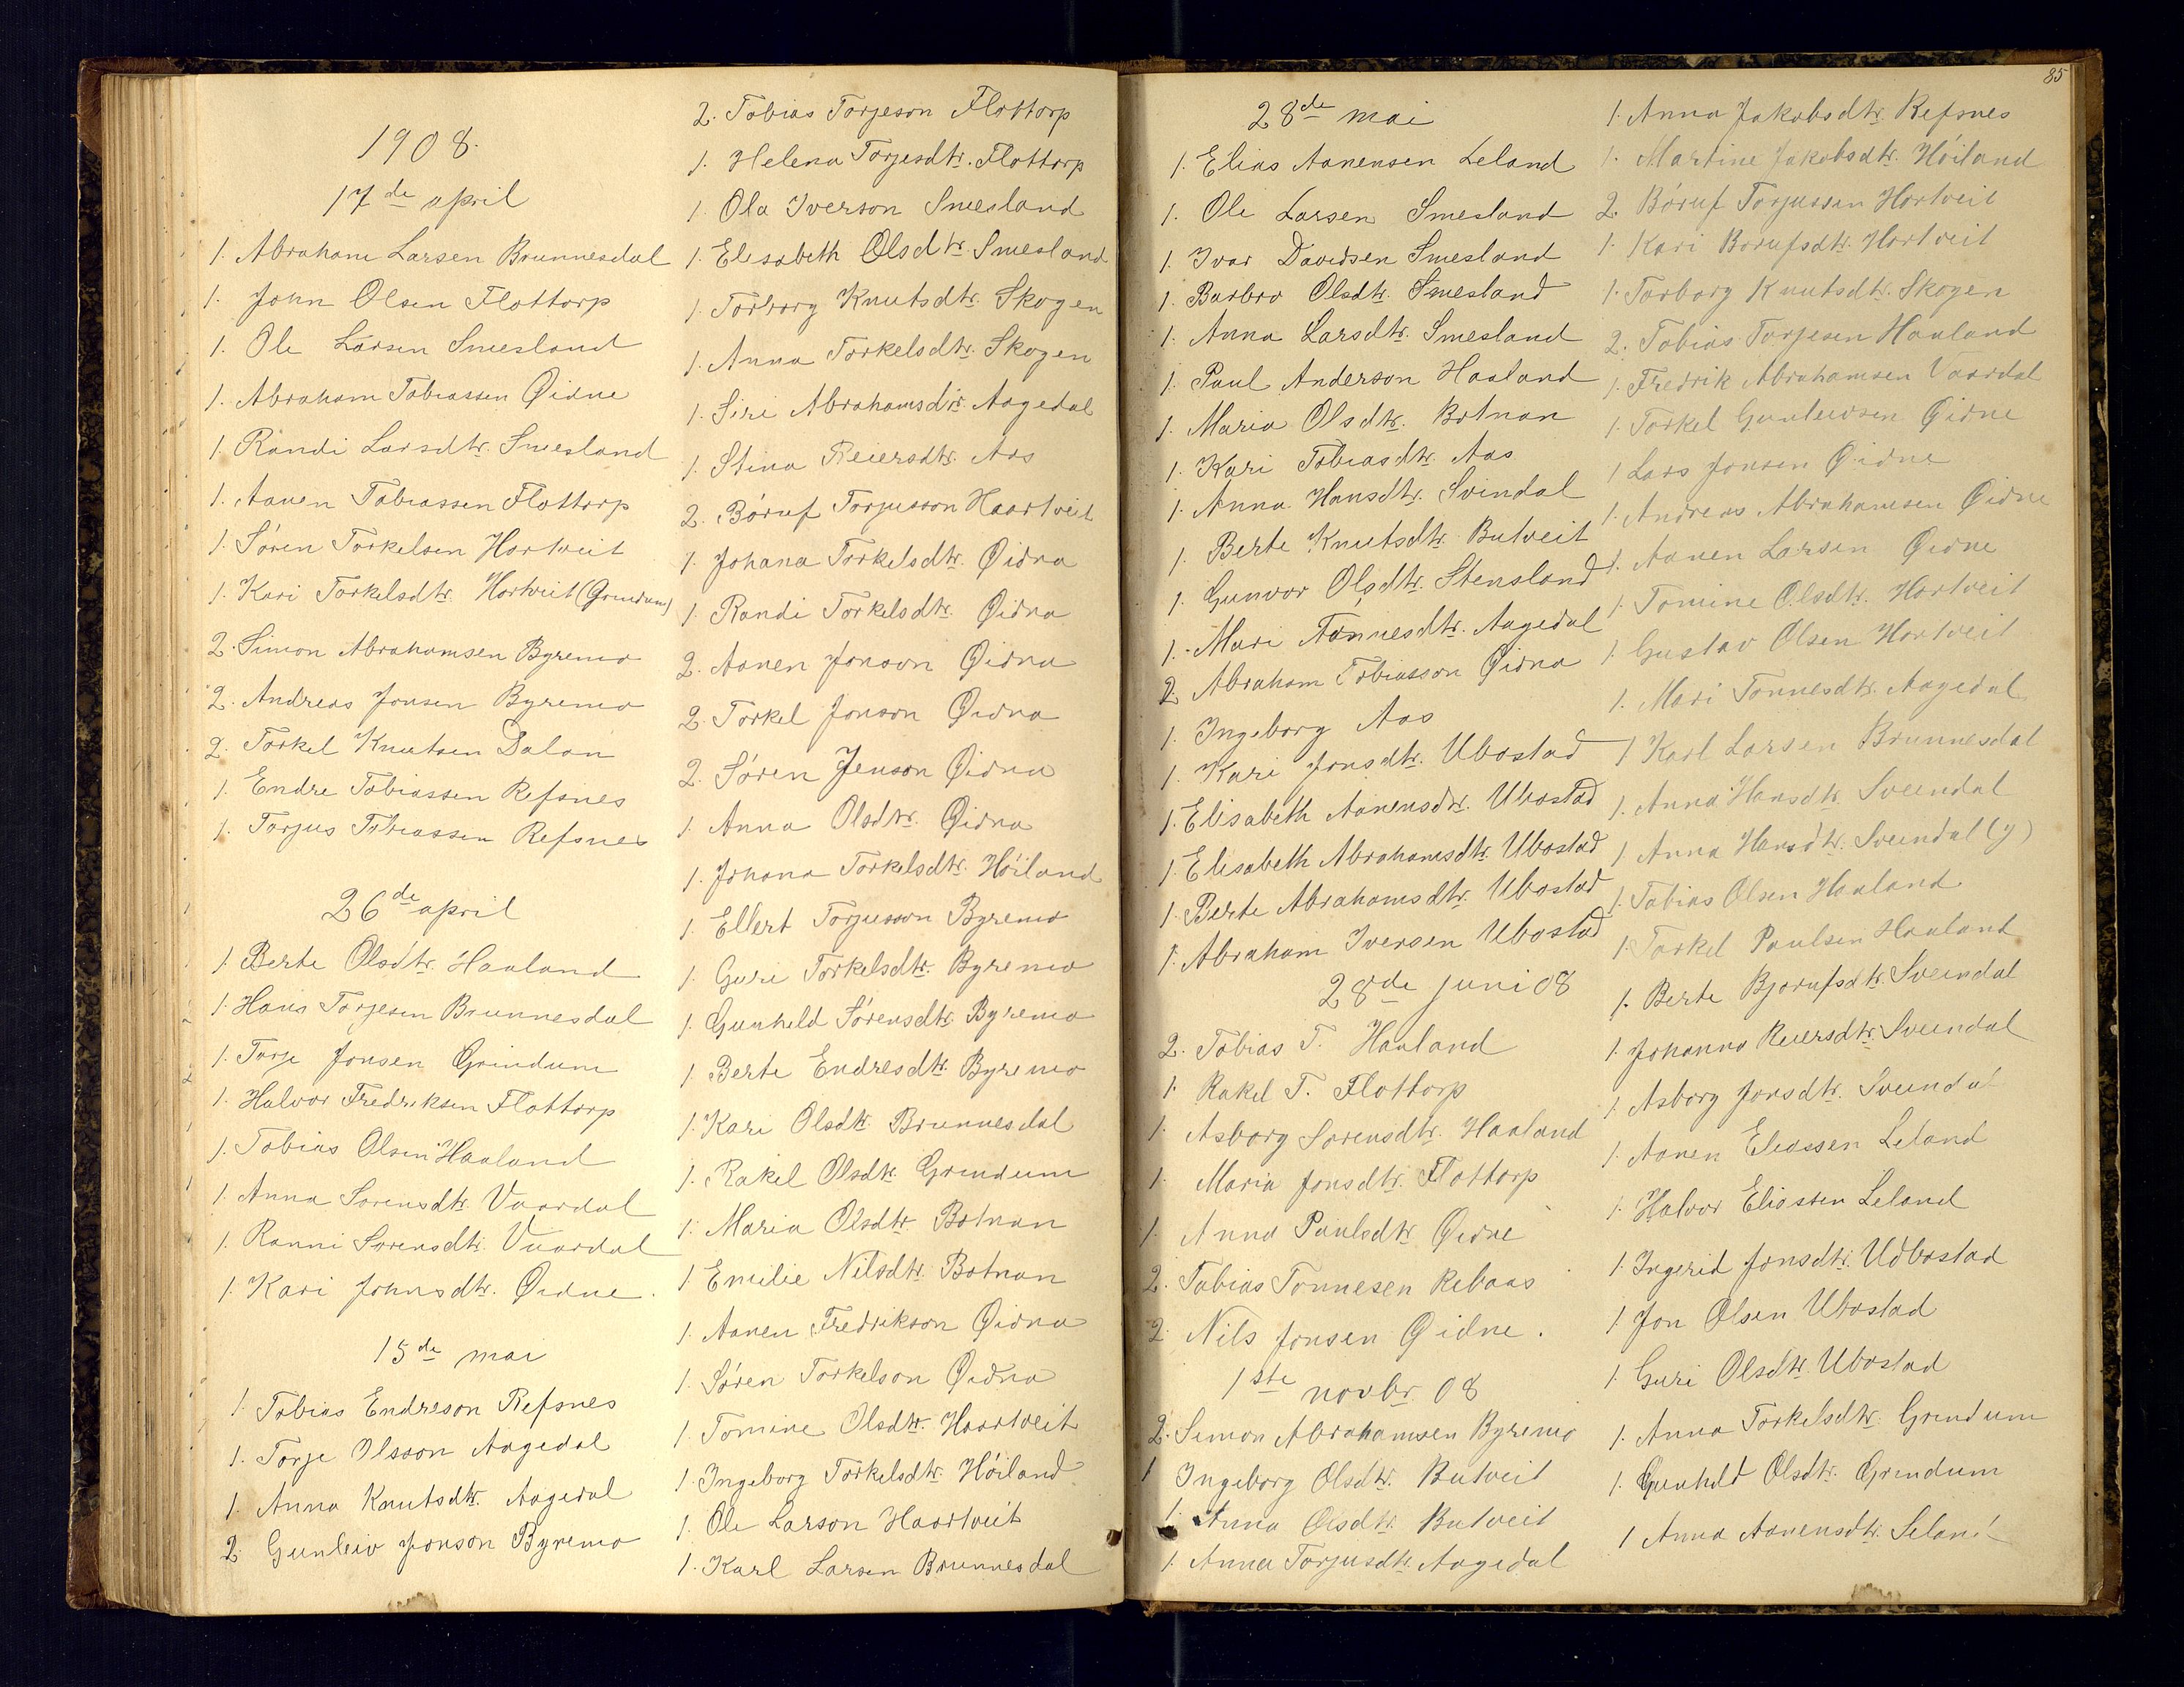 1908.
17de april
1. Abraham Larsen Brunnesdal
1. John Olsen Flottorp
1. Ole Larsen Smesland
1. Abraham Tobiassen Øidne
1. Randi Larsdtr. Smesland
1. Aanen Tobiassen Flottorp
1. Sören Torkelsen Hortveit
1. Kari Torkelsdtr. Hortveit (Grindum)
2. Simon Abrahamsen Byremo
2. Andreas Jonsen Byremo
2. Torkel Knutsen Dalen
1. Endre Tobiassen Refsnes
1. Torjus Tobiassen Refsnes
26de april
1. Berte Olsdtr. Haaland
1. Hans Torjesen Brunnesdal
1. Torje Jonsen Grindum
1. Halvor Fredriksen Flottorp
1. Tobias Olsen Haaland
1. Anna Sorensdtr. Vaardal
1. Ranni Sorensdtr. Vaardal
1. Kari Johnsdtr. Øidne.
15de mai
1. Tobias Endreson Refsnes
1. Torje Olsson Aagedal
1. Anna Knutsdtr. Aagedal
2. Gunleiv Jonson Byremo
2. Tobias Torjeson Flottorp
1. Helena Torjesdtr. Flottorp
1. Ola Iverson Smesland
1. Elisabeth Olsdtr. Smesland
1. Torborg Knutsdtr. Skogen
1. Anna Torkelsdtr. Skogen
1. Siri Abrahamsdtr. Aagedal
1. Stina Reiersdtr. Aas
2. Böruf Torjusson Haartveit
1. Johana Torkelsdtr. Øidna
1. Randi Torkelsdtr. Øidna
2. Aanen Jonson Øidna
2. Torkel Jonson Øidna
2. Søren Jenson Øidna
1. Anna Olsdtr. Øidna
1. Johana Torkelsdtr. Höiland
1. Ellert Torjusson Byremo
1. Guri Torkelsdtr. Byremo
1. Gunheld Sörensdtr. Byremo
1. Berte Endresdtr. Byremo
1. Kari Olsdtr. Brunnesdal
1. Rakel Olsdtr. Grindum
1. Maria Olsdtr. Botnan
1. Emilie Nilsdtr. Botnan
1. Aanen Fredrikson Øidna
1. Sören Torkelson Øidna
1. Tomine Olsdtr. Haartveit
1. Ingeborg Torkelsdtr. Höiland
1. Ole Larson Haartveit
1. Karl Larsen Brunnesdal
85
28de mai
1. Elias Aanensen Leland
1. Ole Larsen Smesland
1. Ivar Davidsen Smesland
1. Barbro Olsdtr. Smesland
1. Anna Larsdtr. Smesland
1. Paul Anderson Haaland
1. Maria Olsdtr. Botnan
1. Kari Tobiasdtr. Aas
1. Anna Hansdtr. Svindal
1. Berte Knutsdtr. Butveit
1. Gunvor Olsdtr. Stensland
1. Mari Tønnesdtr. Aagedal
2 Abraham Tobiasson Øidna
1. Ingeborg Aas
1. Kari Jonsdtr. Ubostad
1. Elisabeth Aanensdtr. Ubostad
1. Elisabeth Abrahamsdtr. Ubostad
1. Berte Abrahamsdtr. Ubostad
1. Abraham Iversen Ubostad
28de juni 08
2. Tobias T. Haaland
1. Rakel T. Flottorp
1. Asborg Sorensdtr. Haaland
1. Maria Jonsdtr. Flottorp
1. Anna Paulsdtr Øidne
2. Tobias Tonnesen Rebaas
2. Nils Jonsen Øidne.
1ste novbr. 08
2. Simon Abrahamsen Byremo
1 Ingeborg Olsdtr. Butveit
1. Anna Olsdtr. Butveit
1. Anna Torjusdtr. Aagedal
1. Anna Jakobsdtr. Refsnes
1. Martine Jakobsdtr. Höiland
2. Böruf Torjussen Hortveit
1. Kari Borufsdtr. Hortveit
1. Torborg Knutsdtr. Skogen
2. Tobias Torjesen Haaland
1. Fredrik Abrahamsen Vaardal
1. Torkel Gunleivsen Øidne
1 Lars Jonsen Øidne
1. Andreas Abrahamsen Øidne
1. Aanen Larsen Øidne
1. Tomine Olsdtr. Hortveit
1. Gustav Olsen Hortveit
1. Mari Tonnesdtr. Aagedal
1 Karl Larsen Brunnesdal
1. Anna Hansdtr. Sveindal
1. Anna Hansdtr. Sveindal (y)
1. Tobias Olsen Haaland
1. Torkel Paulsen Haaland
1. Berte Bjorufsdtr. Sveindal
1. Johanna Reiersdtr. Sveindal
1. Asborg Jonsdtr. Sveindal
1. Aanen Eliassen Leland
1. Halvor Eliassen Leland
1. Ingerid Jonsdtr. Udbostad
1 Jon Olsen Ubostad
1. Guri Olsdtr. Ubostad
1. Anna Torkelsdtr. Grindum
1. Gunhild Olsdtr. Grindum
1 Anna Aanensdtr. Leland